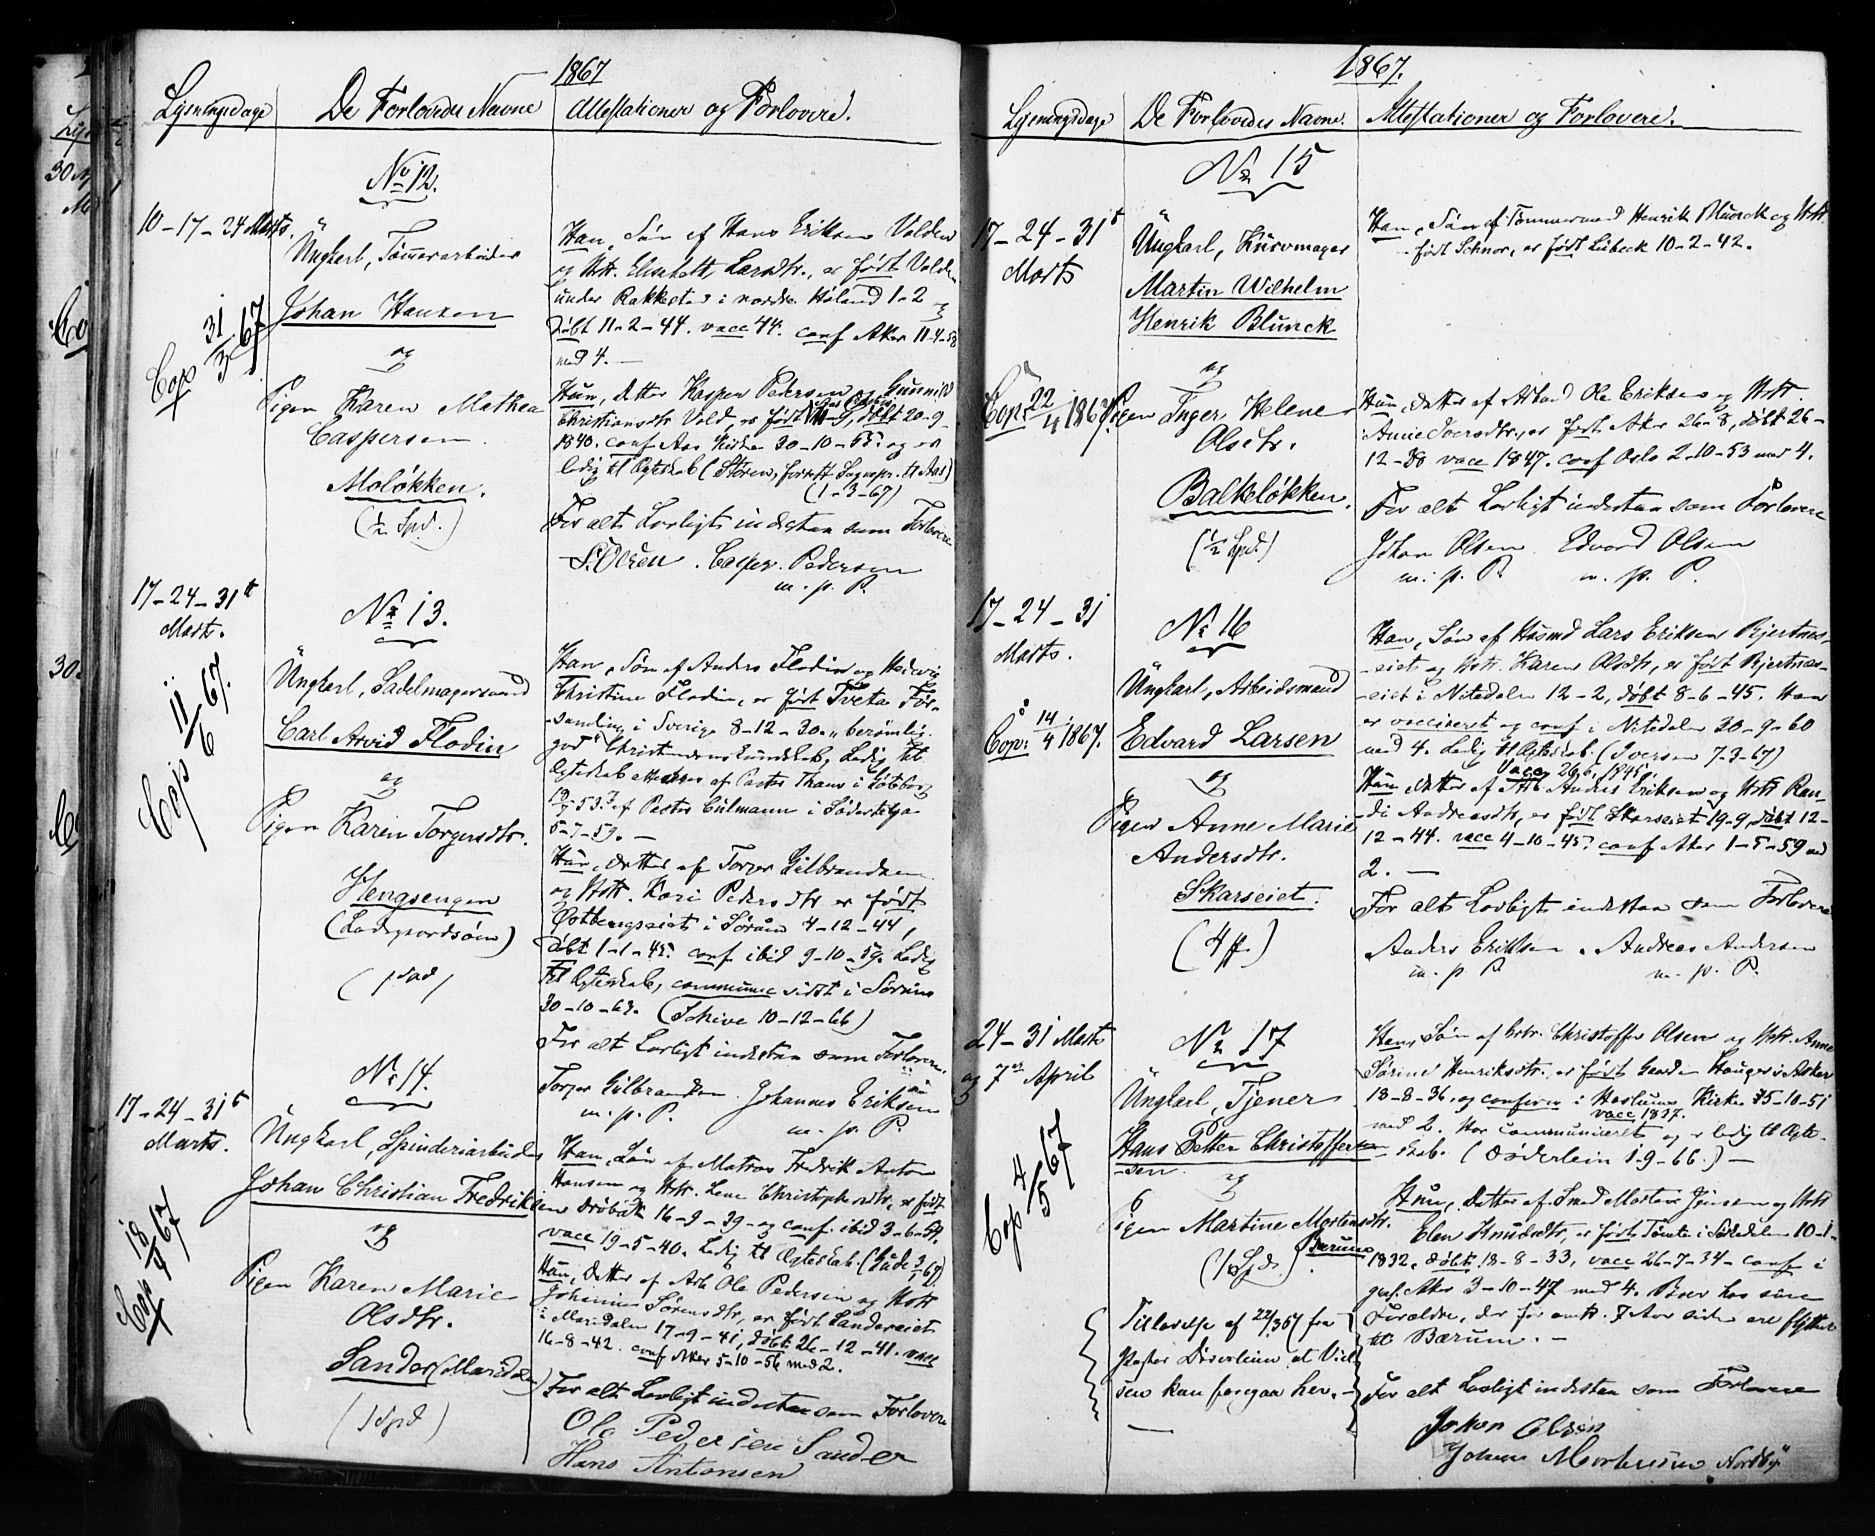 1867
Lysningsdage De Forlovedes Navne Attestationer og Forlovere.
No 12.
10-17-24 Marts.
Ungkarl, Tømmerarbeider
Johan Hansen
Cop 31/3 67
og
Pigen Karen Mathea
Caspersen
Moløkken.
(½ Spd.)
Han, Søn af Hans Eriksen Volden
og Hstr. Elisabeth Larsdtr., er født Volden
under Rakkestad i nordre Høland 1-2
døbt 11-2-44. vacc 44. conf Aker 11-4-58
med 4. —
Hun, Datter Kasper Pedersen og Gunnild
Christiansdtr Vold, er født 11-9, døbt 20-9-
1840. conf Aas Kirke 30-10-55 og er
ledig til Ægteskab (Støren, Sognepr. til Aas)
(1-3-67)
For alt Lovligt indestaa som Forlovere
S. Olsen. Casper Pedersen
m. p. P.
17-24-31t
Marts.
No 13.
Ungkarl, Sadelmagersvend
Carl Arvid Flodin
Cop 11/6 67.
og
Pigen Karen Torgersdtr.
Hengsengen
(Ladegaardsøen)
(1 Spd)
Han, Søn af Anders Flodin og Hedevig
Christine Flodin, er født Tveta For-
samling i Sverige 8-12-30. "berømlig
god" Christendomskundskab, Ledig til
Ægteskab attesteres af Pastor Tham i Gøteborg
53. af Pastor Culmann i Södertelge
5-7-59. —
Hun, Datter af Torger Gulbrandsen
og Hstr. Kari Pedersdtr er født
Østbengseiet i Sørum 4-12-44,
døbt 1-1-45. conf ibid 9-10-59. Ledig
til Ægteskab, communic. sidst i Sørum
30-10-63. (Schive 10-12-66)
For alt Lovligt indestaa som Forlovere.
Torger Gulbrandsen Johannes Eriksen
m. p. P. m. p. P.
No 14.
17-24-31t
Marts.
Ungkarl, Spinderiarbeider
Johan Christian Fredriksen
Cop 18/4 67
og
Pigen Karen Marie
Olsdtr.
Sander (Maridalen)
(1 Spd)
Han, Søn af Matros Fredrik Anton
Hansen og Hstr. Lene Christophersdtr, er født
Drøbak 16-9-39 og conf. ibid 3-6-54.
vacc 19-5-40. Ledig til Ægteskab. (Gude 3/1 67)
Hun, Datter af Arb Ole Pedersen og Hstr
Johanne Sørensdtr, er født Sanderseiet
i Maridalen 17-9-41, døbt 26-12-41. vacc
16-8-42. conf Aker 5-10-56 med 2.
For alt Lovligt indestaa som Forlovere
Ole Pedersen Sander
Hans Antonsen
1867.
Lysningsdage De Forlovedes Navne. Attestationer og Forlovere.
No 15
17-24-31t
Marts
Ungkarl, Kurvmager
Martin Wilhelm
Henrik Blunck
Cop: 22/4 1867.
og
Pigen Inger Helene
Olsdtr.
Balkeløkken.
(½ Spd.)
Han, Søn af Tømmermand Henrik Blunck og Hstr
født Schnor, er født Lübeck 10-2-42.
Hun, Datter af Arbmd Ole Eriksen og Hstr.
Anne Iversdtr., er født Aker 26-8, døbt 26-
12-38 vacc 1847. conf Oslo 2-10-53 med 4.
For alt Lovligt indestaa som Forlovere
Johan Olsen Edvard Olsen
m. p. P. m. p. P.
17-24-31
Marts.
No 16
Ungkarl, Arbeidsmand
Edvard Larsen
Cop: 14/4 1867.
og
Pigen Anne Marie
Andersdtr.
Skarseiet.
(4 )
Han, Søn af Husmd Lars Eriksen Bjertnes-
eiet og Hstr. Karen Olsdtr, er født Bjertnes-
eiet i Nitedalen 12-2, døbt 8-6-45. Han
er vaccineret og conf i Nitedalen 30-9-60
med 4. Ledig til Ægteskab. (Iversen 7-3-67)
Vacc 26 1845.
Hun, Datter af Arb Anders Eriksen og Hstr Ran-
di Andreasdtr, er født Skarseiet 19-9, døbt 12-
12-44. vacc 4-10-45. conf Aker 1-5-59 med
2. —
For alt Lovligt indestaa som Forlovere
Anders Eriksen. Andreas Andersen
m. p. P m. p. P.
24-31 Marts
og 7er April
No 17
Ungkarl, Tjener
Hans Petter Christoffer-
sen
Cop 4/5 67
og
Pigen Martine Mortensdtr.
Bærum
(½ Spd.)
Tilladelse af 22/3 67 fra
Pastor Døderlein at Viel-
sen kan foregaa her. —
Han, Søn af Christoffer Olsen og Hstr. Anne
Sørine Henriksdtr., er født Gaarden Hauger i Asker
18-8-36, og confirm i Haslums Kirke 5-10-51
med 2. vacc 1837. Har communiceret og er ledig til Ægte-
skab. (Døderlein 1-9-66.) —
Hun, Datter af Smed Morten Jensen og Hstr
Elen Knudsdtr, er født Tomte i Sørkedalen 10-1-
1832, døbt 18-8-33, vacc 26-7-34 conf i
Aker 3-10-47 med 4. Boer hos sine
Forældre, der for omtr. 7 Aar siden ere flyttede
til Bærum. —
For alt Lovligt indestaa som Forlovere
Johan Olsen
Johan Mortensen Nordby